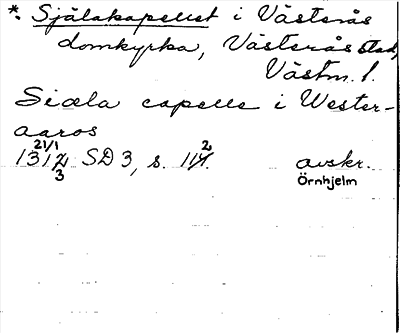 *. Själakapellet i Västerås
domkyrka, Västerås stad,
Västm. l.
Siæla capelle i Wester-
aaros
21/1 2
1312 SD 3, s. 114. avskr.
3 Örnhjelm